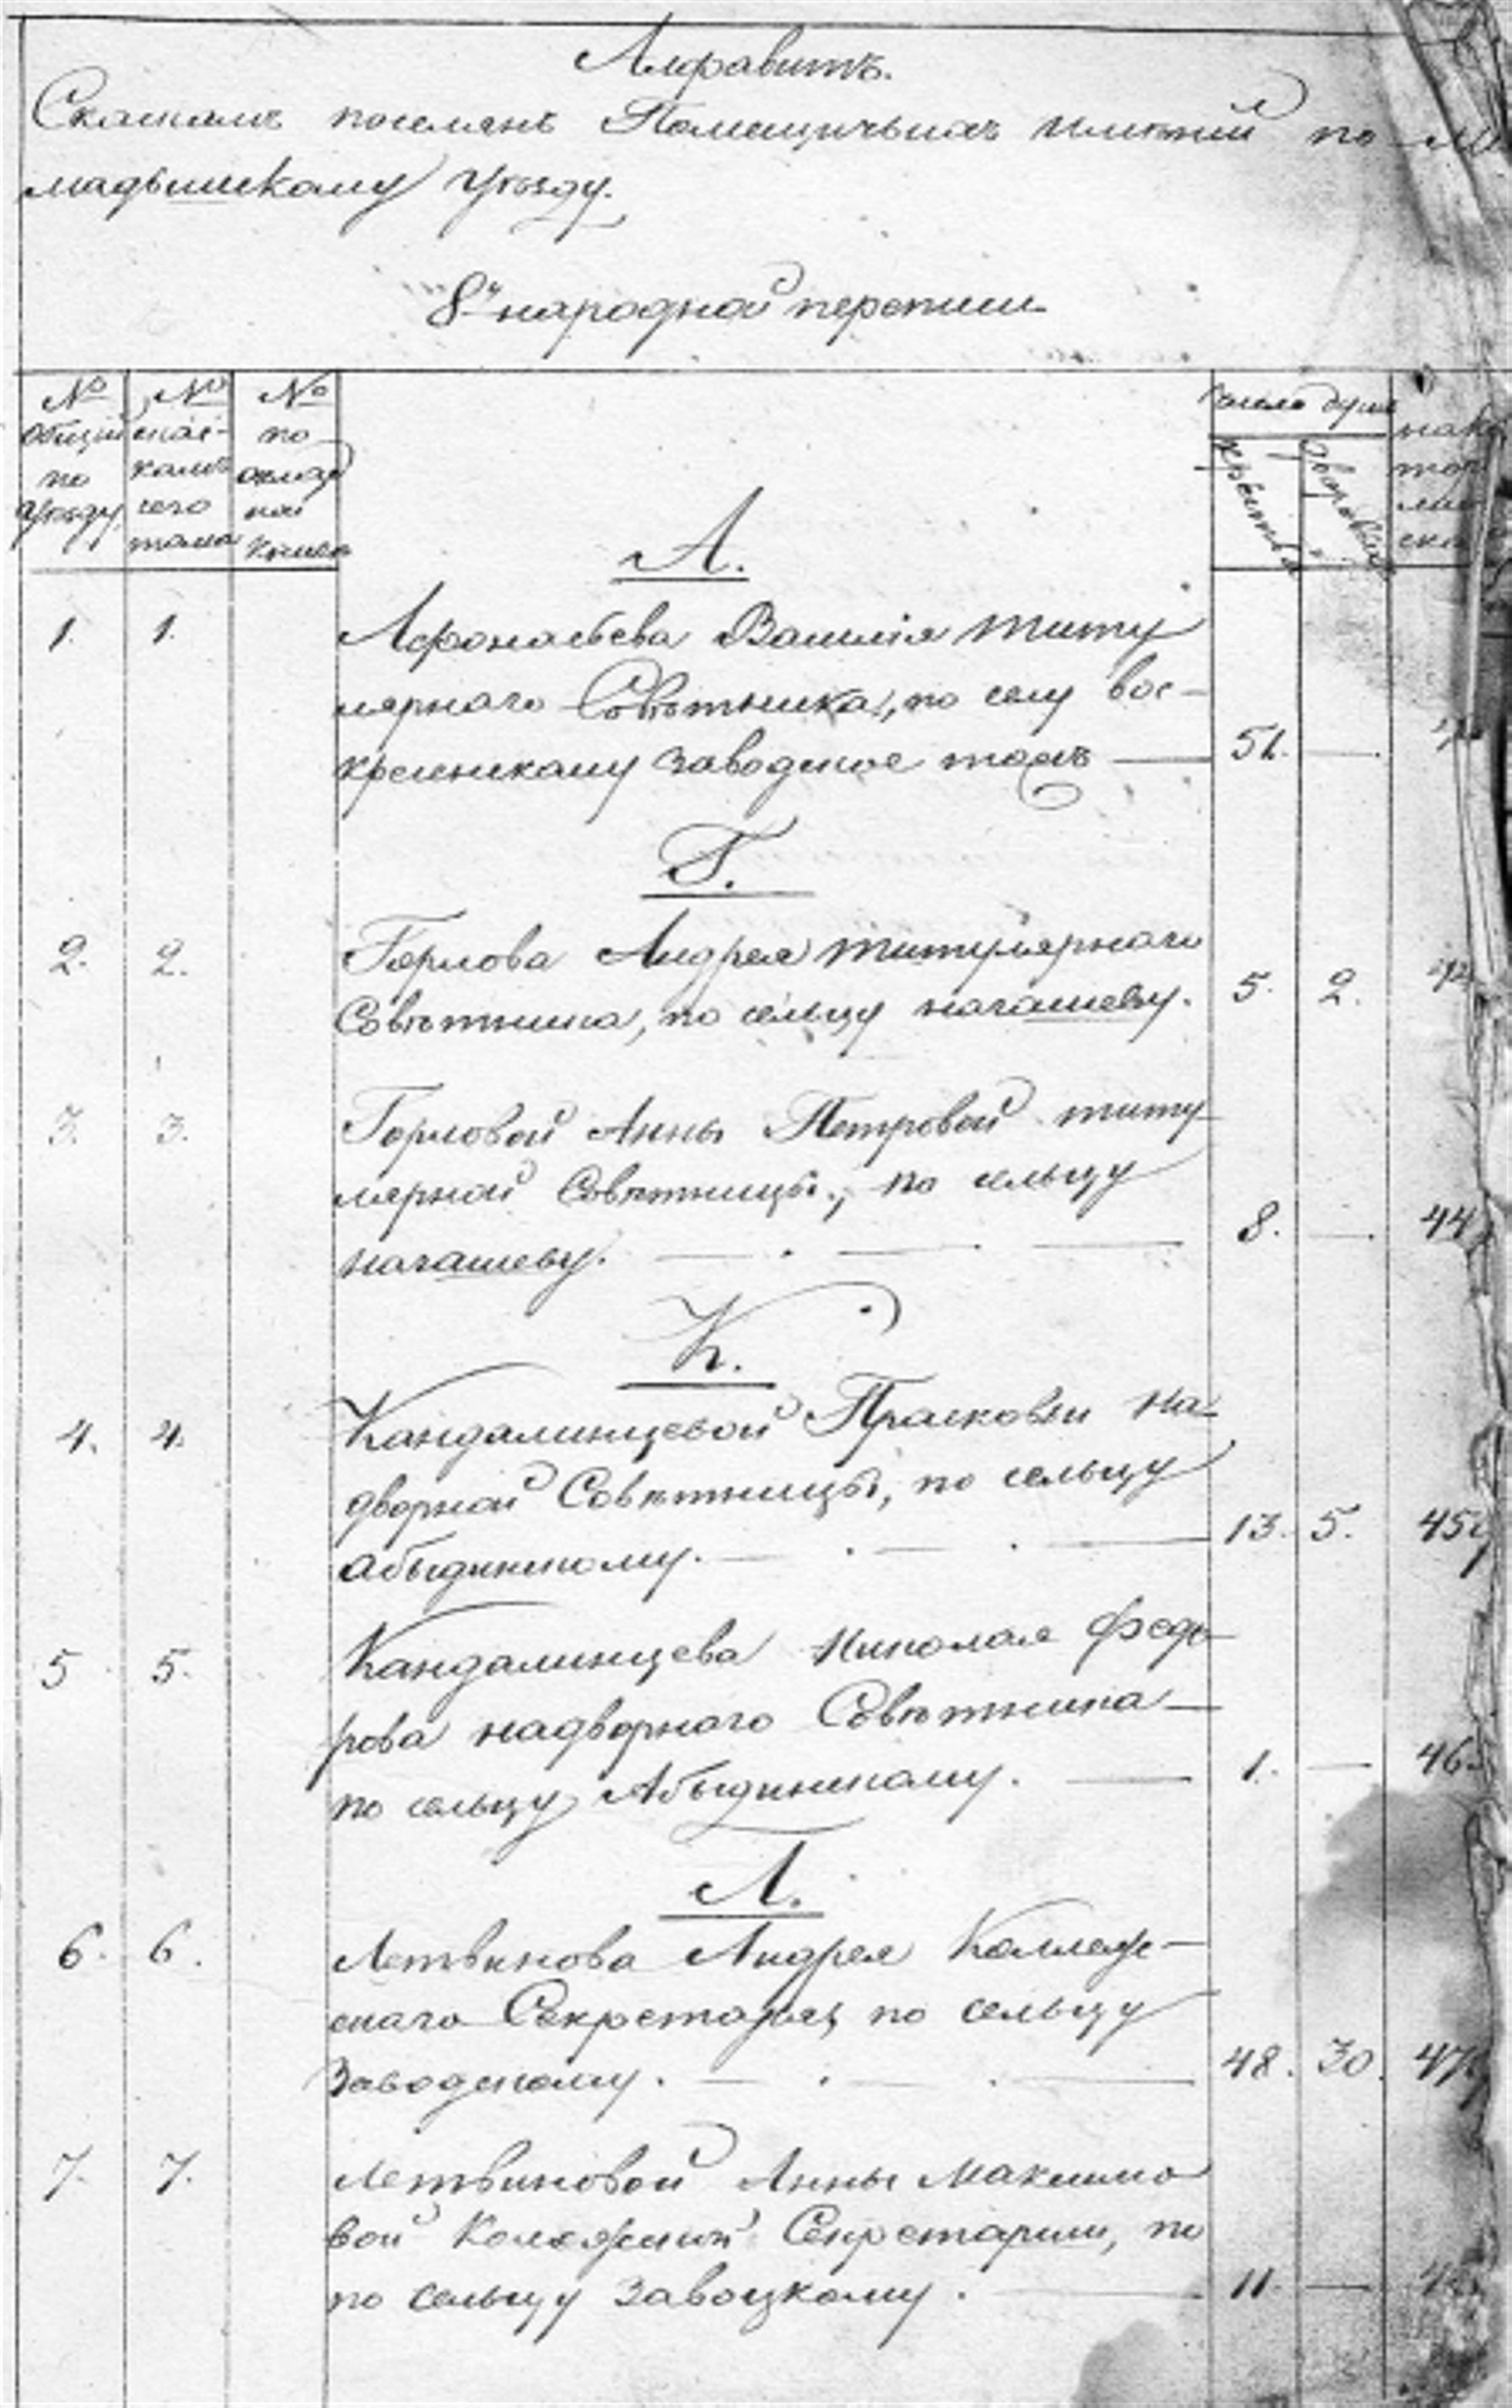 Алфавитъ.
Сказкамъ поселянъ Помещичьихъ имѣний по
мадышскому уѣзду.
8й народной переписи
№ общий по уѣзду
№ сказкамъ сего тома
№ по окладной книге
число душъ
крестья
дворовых
А.
1. 1. Афонасьева Василия титу
лярнаго Совѣтника, по селу Вос-
кресенскому Заводское тожъ — 51. —
Г.
2. 2. Горлова Андрея титулярнаго
Совѣтника, по сельцу начашеву. 5. 2.
3. 3. Горловой Анны Петровой титу
лярной Совѣтницы, по сельцу
начашеву. — 8. — 44
К.
4. 4. Кандалинцевой Прасковьи на
дворной Совѣтницы, по сельцу
абыдинскому. — 13. 5. 45
5 5. Кандалинцева Николая Федо
рова надворнаго Совѣтника
по сельцу Абыдинскому. — 1. — 46
Л.
6. 6. Летвинова Андрея Коллеж-
скаго Секретаря, по сельцу
Заводскому. — 48. 30. 47
7. 7. Летвиновой Анны Максимо
вой Колежской Секретарши, по
по сельцу Завоцкому. — 11. —